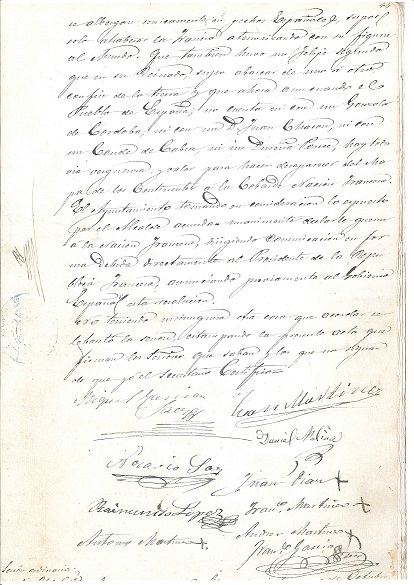 se albergan unicamente en pechos Españoles, supo el
solo abatir la Francia atemorizando con su figura
al Mundo. Que tambien hubo un Felipe segundo
que en su Reinado supo abarcar de uno a otro
confin de la tierra y que ahora aun cuando el
Pueblo de España, no cuenta ni con un Gonzalo
de Cordoba, ni con un D. Juan Chacon, ni con
un Conde de Cabra, ni un Ponce, hay toda
via verguenza y valor para hacer desaparecer del Ma
pa de los Continentes a la Cobarde Nación Francesa.
El Ayuntamiento tomando en consideración lo expuesto
por el Alcalde acuerdan unanimemente declarar la guerra
a la Nacion francesa dirigiendo comunicación en for
ma debida directamente al Presidente de la Repu
blica Francesa, anunciando previamente al Gobierno
Español esta resolución.
no teniendo ninguna otra cosa que
la sesion, estampando la presente acta que
firman los Señores que saben y los que no signan
de que yó el Secretario Certifico=
Miguel Garcia
Juan Martinez
Daniel Molina
Horacio
Juan Diaz +
Raimundo Lopez
Franco Martinez +
Antonio Martinez +
Andres Martinez +
Franco Garcia
Sesión ordinaria
Octubre